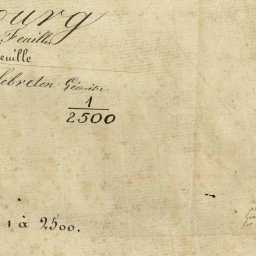 ourg
Feuille
euille
Lebreton Géomètre
1
2500
1 à 2500.